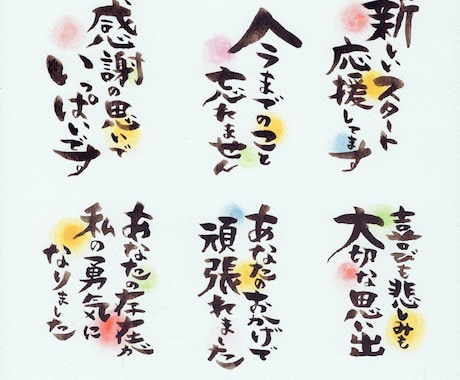 新しいスタート
応援してます
今までのこと
忘れません
感謝の思いで
いっぱいです
喜びも悲しみも
大切な思い出
あなたのおかげで
頑張れました
あなたの存在が
私の勇気に
なりました